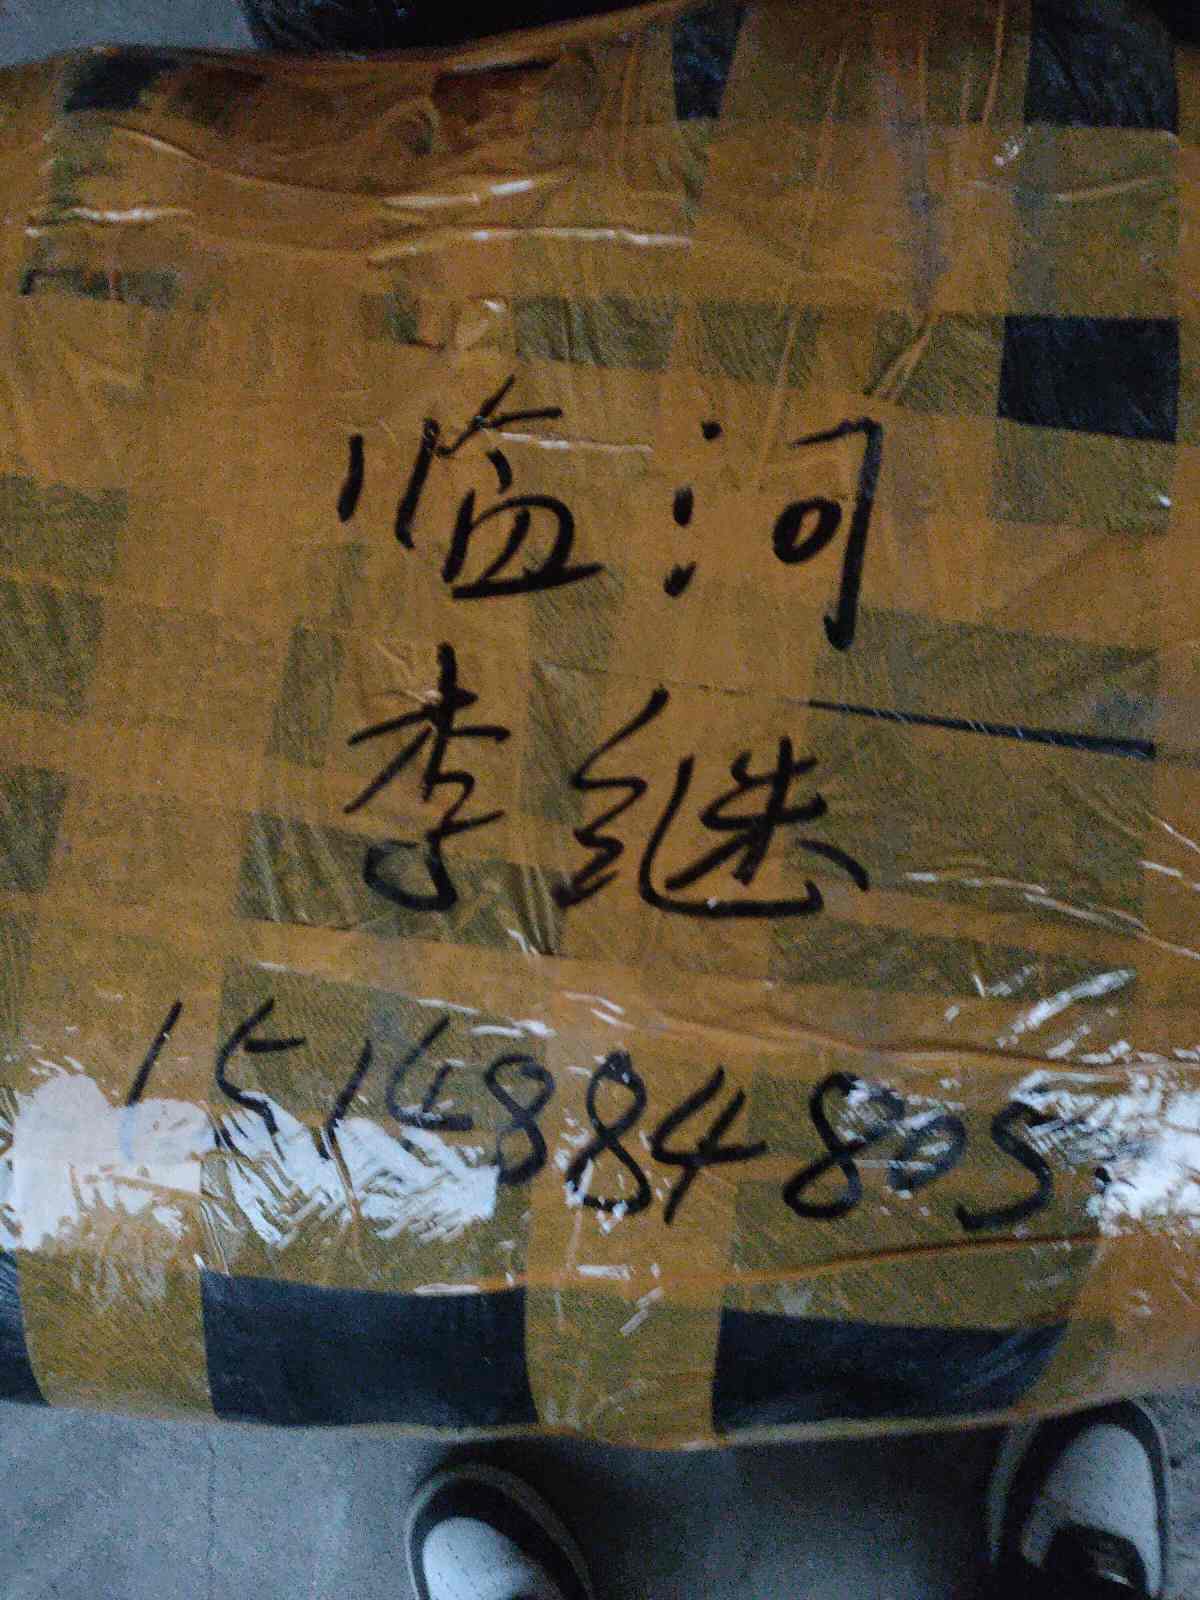 临河
李继
15148848805